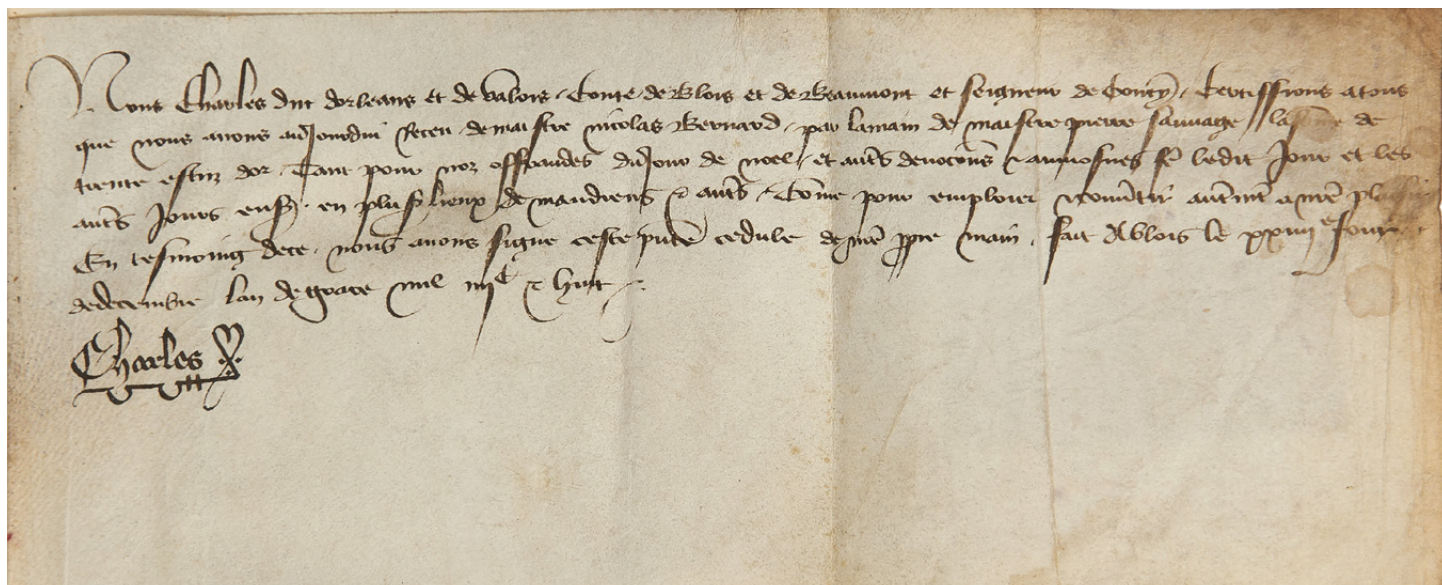 Nous Charles duc dorleans et de valois Conte de Blois et de Beaumont et seigneur de Coucy Certiffions a tous
que nous avons au Jourdui Receu de maistre nicolas Bernard par la main de maistre pierre sauvage la some de
trente escuz dor Tant pour noz offrandes du Jour de noel et auts devocons aumosnes led̄it Jour et les
auts Jours ens en plus lieux de mandiens auts Come pour emploier a nre
En tesmoing de ce nous avons signe ceste pnte cedule de nre ppre main fait A blois le xxiiij e Jour
de decembre lan de grace mil iiij C huit
Charles